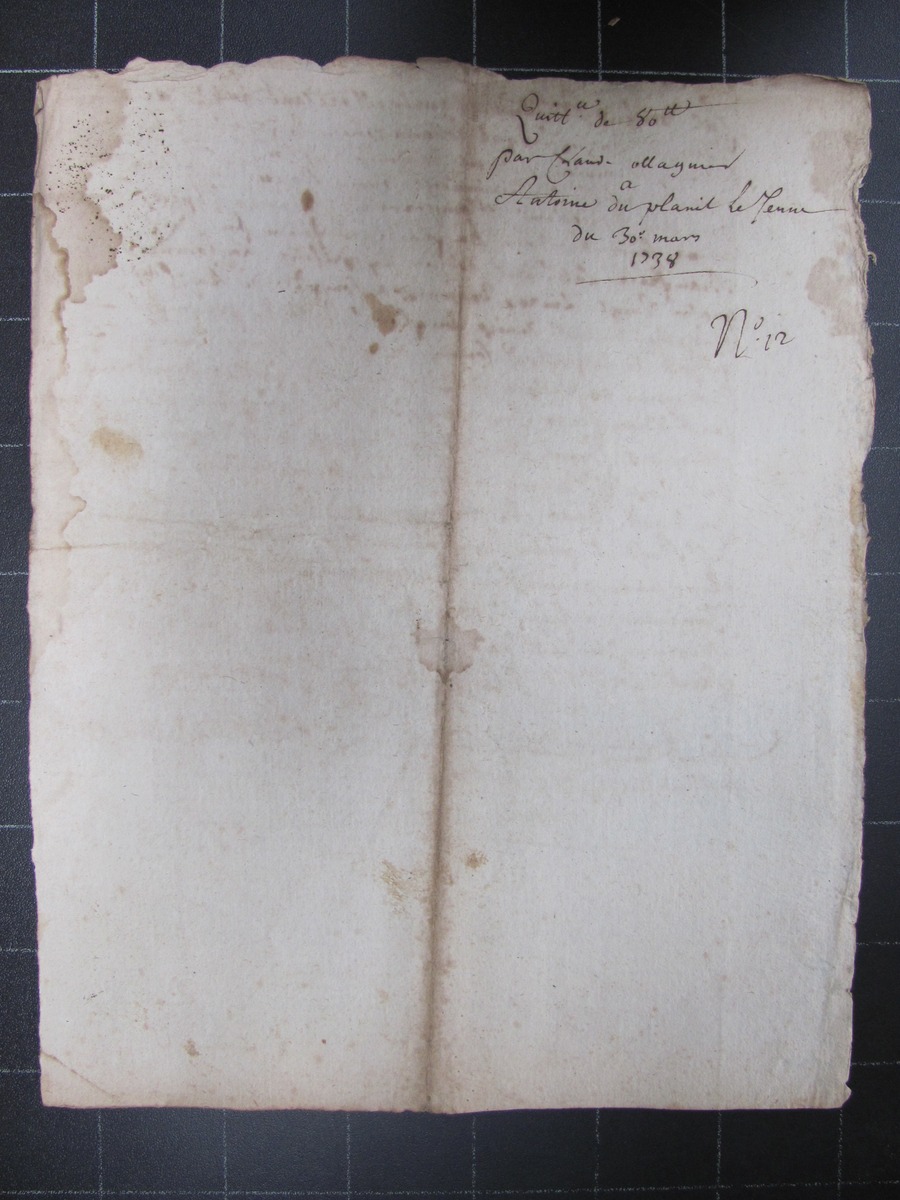 Quitt.ce de 80tt
par Claude ollagnier
a
Antoine du planil le Jeune
du 30e mars
1738
No. 12